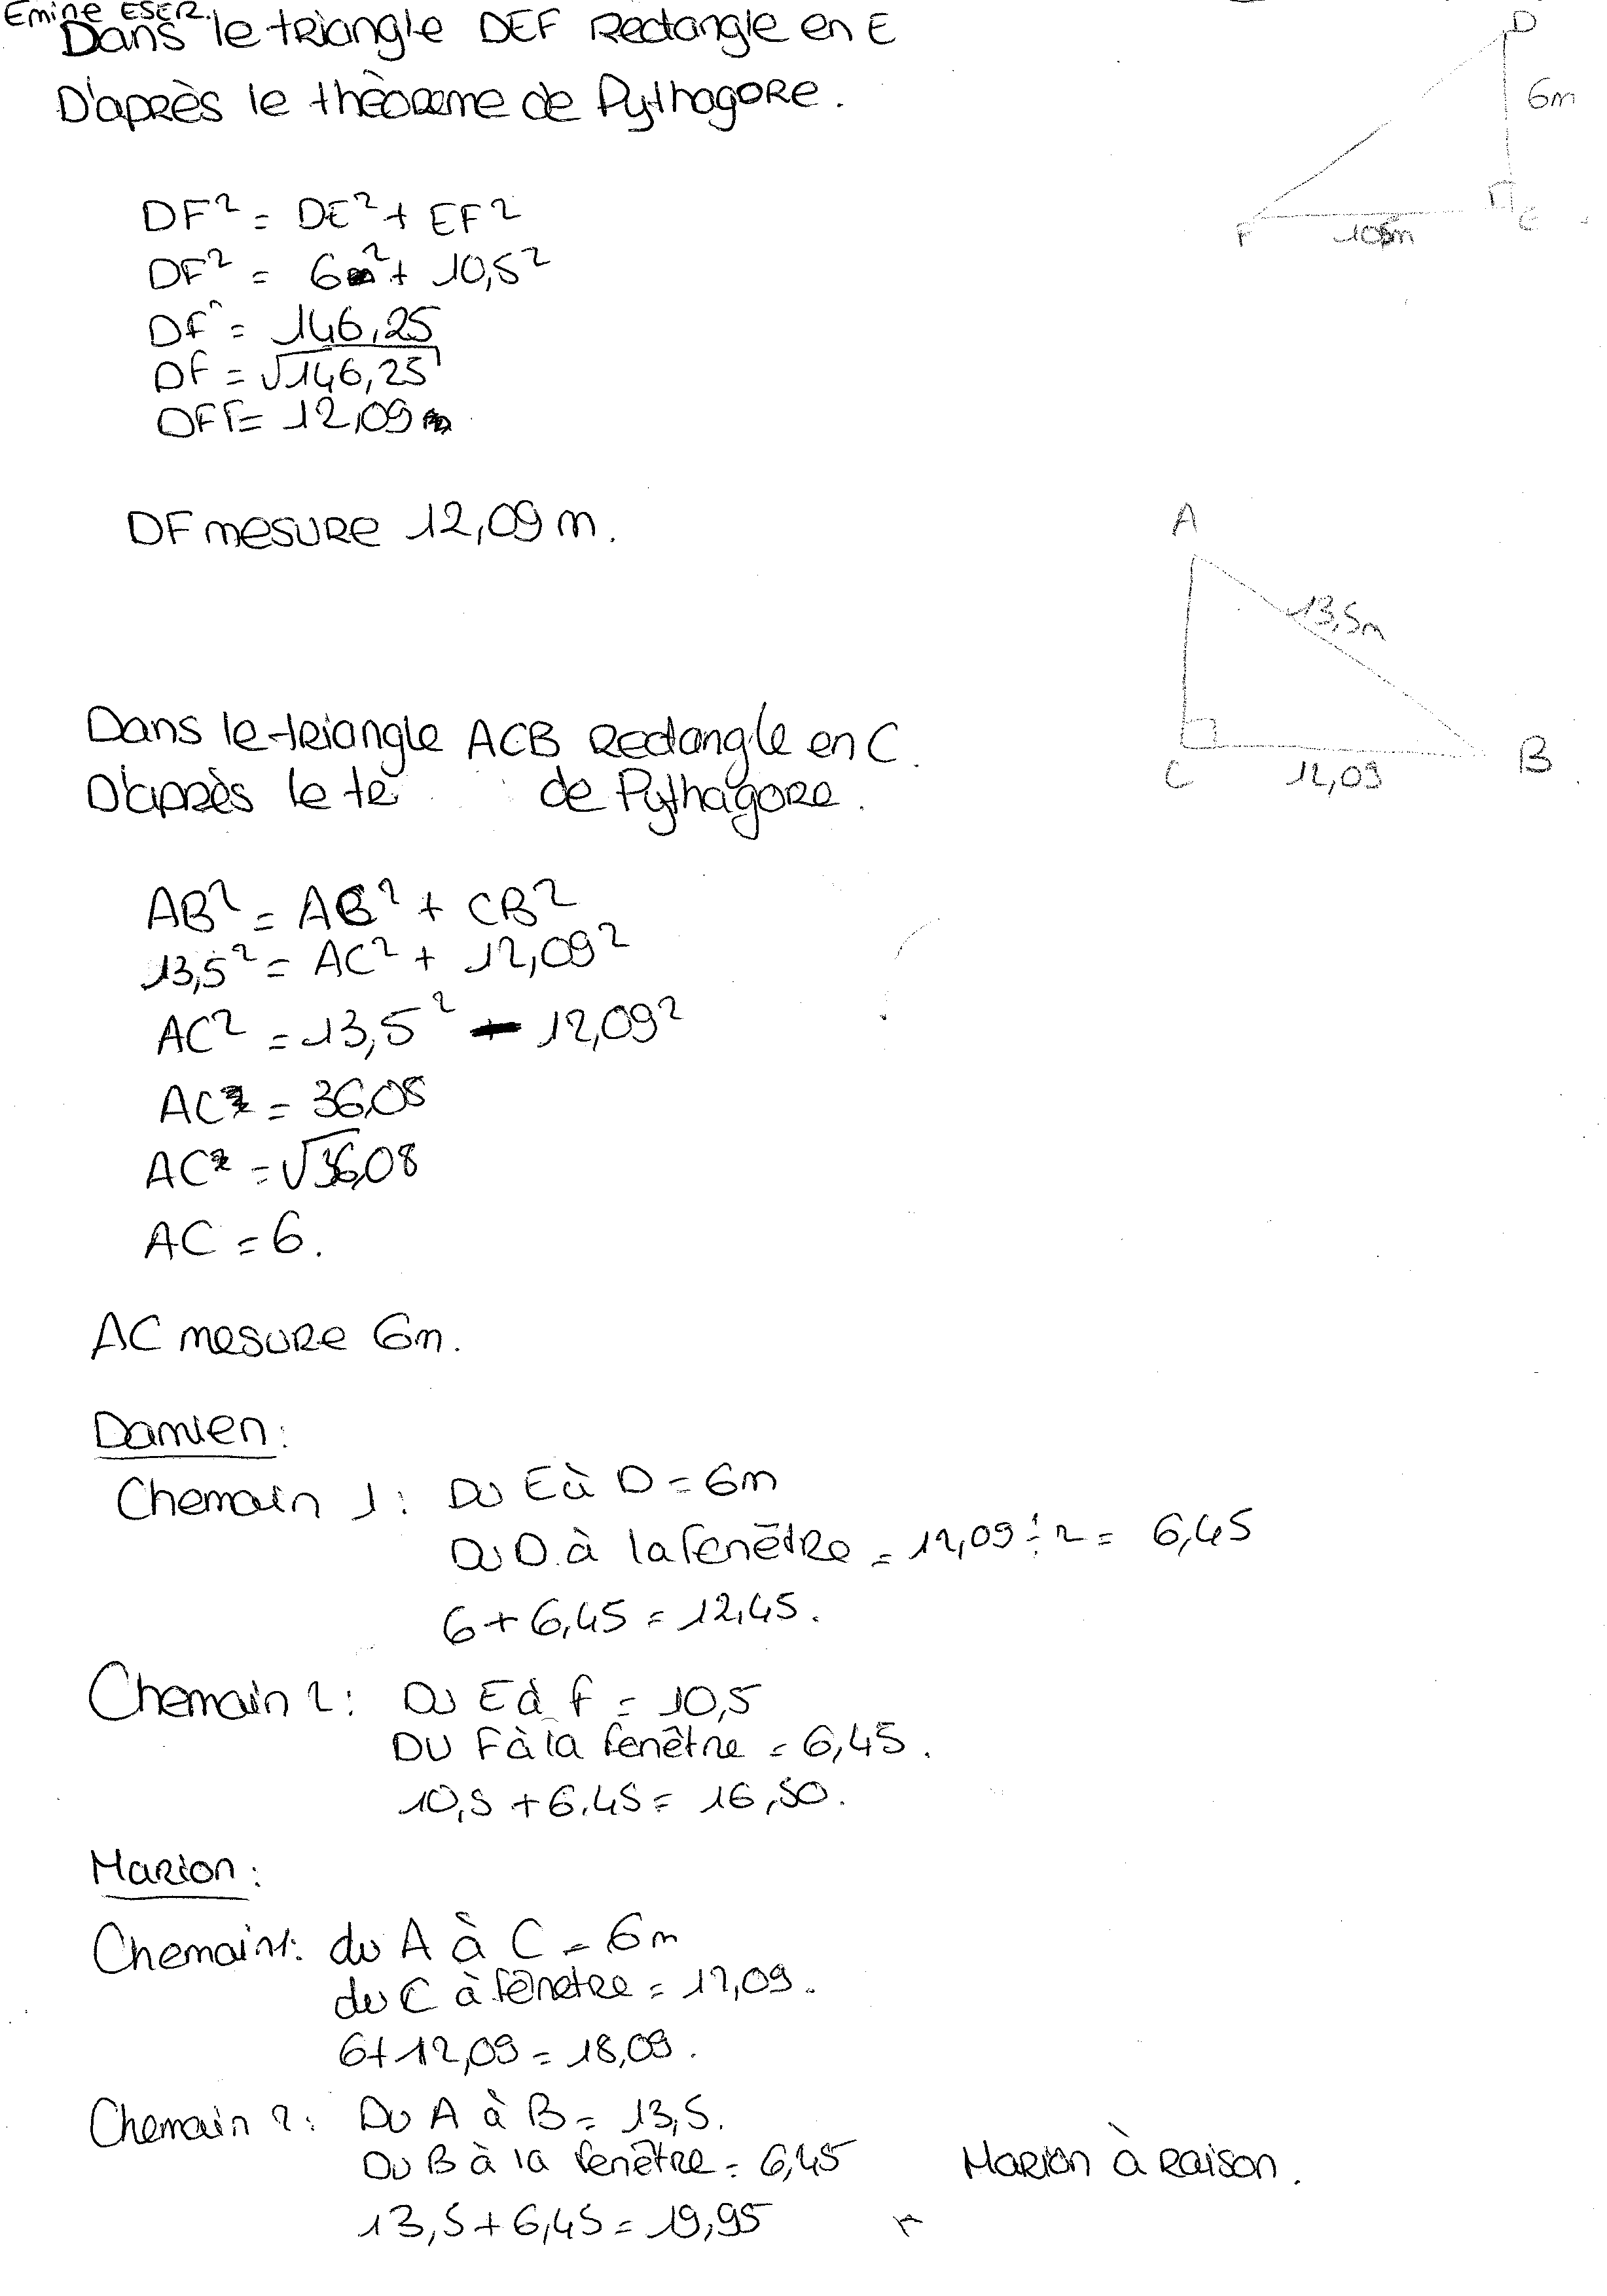 Emine ESER.
Dans le triangle DEF Rectangle en E
D'après le thèoreme de Pythagore.
D
6m
F
E
DF² = DE² + EF²
DF² = 6² + 10,5²
DF² = 146,25
DF = √146,25
DF = 12,09
DF mesure 12,09 m.
A
13,5m
C
12,09
B
Dans le triangle ACB Rectangle en C.
D'après le de Pythagore.
AB² = AC² + CB²
13,5² = AC² + 12,09²
AC² = 13,5² - 12,09²
AC² = 36,08
AC = √36,08
AC = 6.
AC mesure 6m.
Damien:
Chemain 1: Du E à D = 6m
Du D à la fenêtre = 12,09 ÷ 2 = 6,45
6 + 6,45 = 12,45.
Chemain 2: Du E à F = 10,5
DU F à la fenêtre = 6,45.
10,5 + 6,45 = 16,50.
Marion:
Chemain 1: du A à C = 6m
du C à fenetre = 12,09.
6 + 12,09 = 18,09.
Chemain 2: Du A à B = 13,5.
Du B à la fenêtre = 6,45
13,5 + 6,45 = 19,95
Marion à raison.